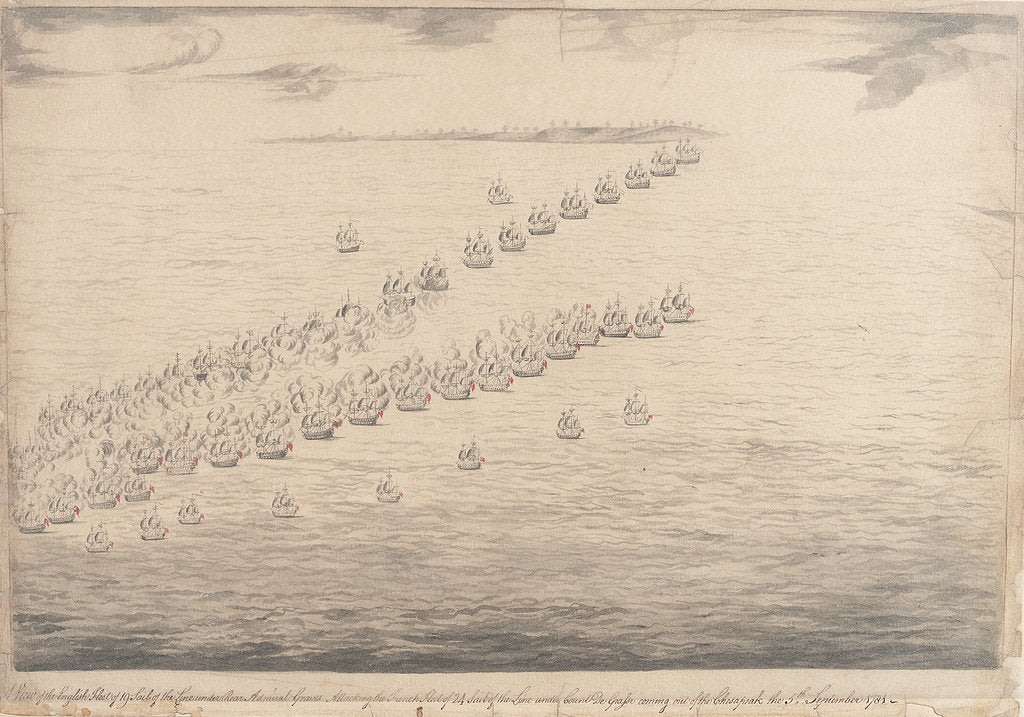 A View of the English Fleet of 19 Sail of the Line under Rear Admiral Graves Attacking the French Fleet of 24 Sail of the Line under Count De Grasse coming out of the Chesapeak the 5th September 1781